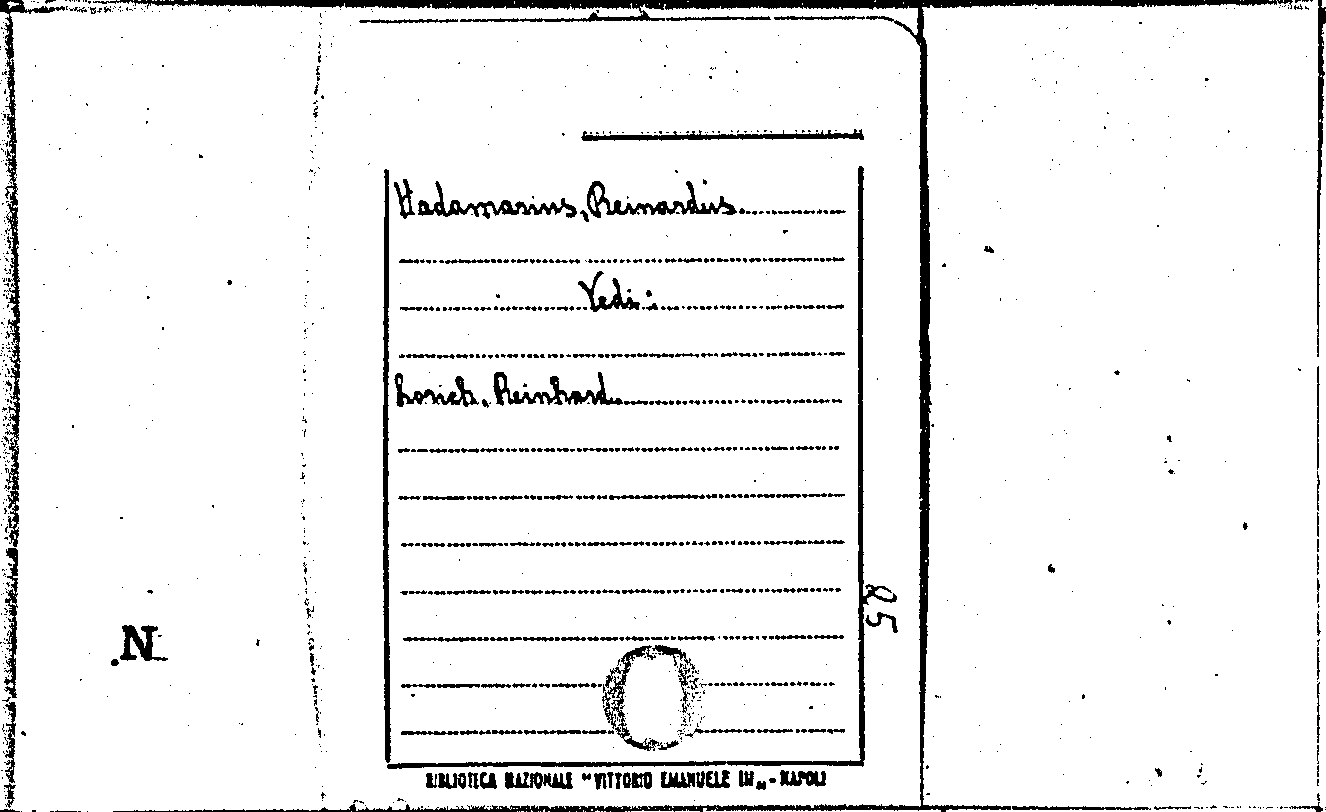 Hadamarius, Reinardus.
Vedi:
Lorich, Reinhard.
25
N
BIBLIOTECA NAZIONALE "VITTORIO EMANUELE III„ - NAPOLI